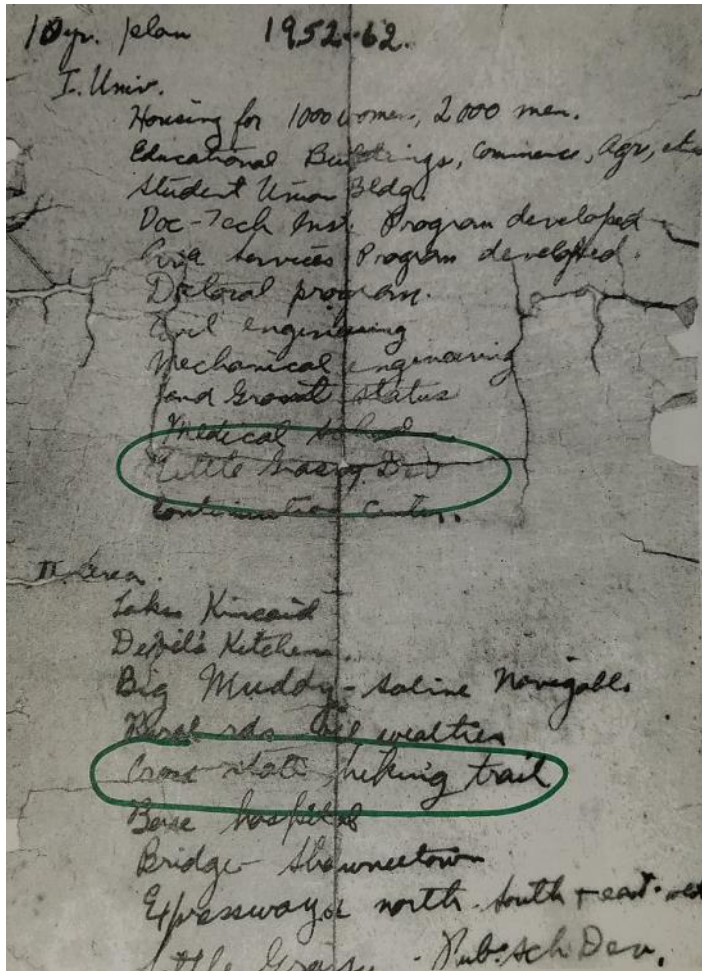 10yr. plan 1952-62.
I. Univ.
Housing for 1000 women, 2000 men.
Educational Buildings, Commerce, Agr, etc
Student Union Bldg.
Voc-Tech Inst. Program developed
Area Services Program developed.
Doctoral program.
Civil engineering
Mechanical engineering
Land Grant status
Medical School
Little Grassy Dev
Continuation Center.
II. Area.
Lakes Kincaid
Devil's Kitchen.
Big Muddy - Saline Navigable
Rural rds all weather
Cross state hiking trail
Base hospital
Bridge - Shawneetown
Expressways north-south + east-west
Little Grassy - Pub. Sch Dev.